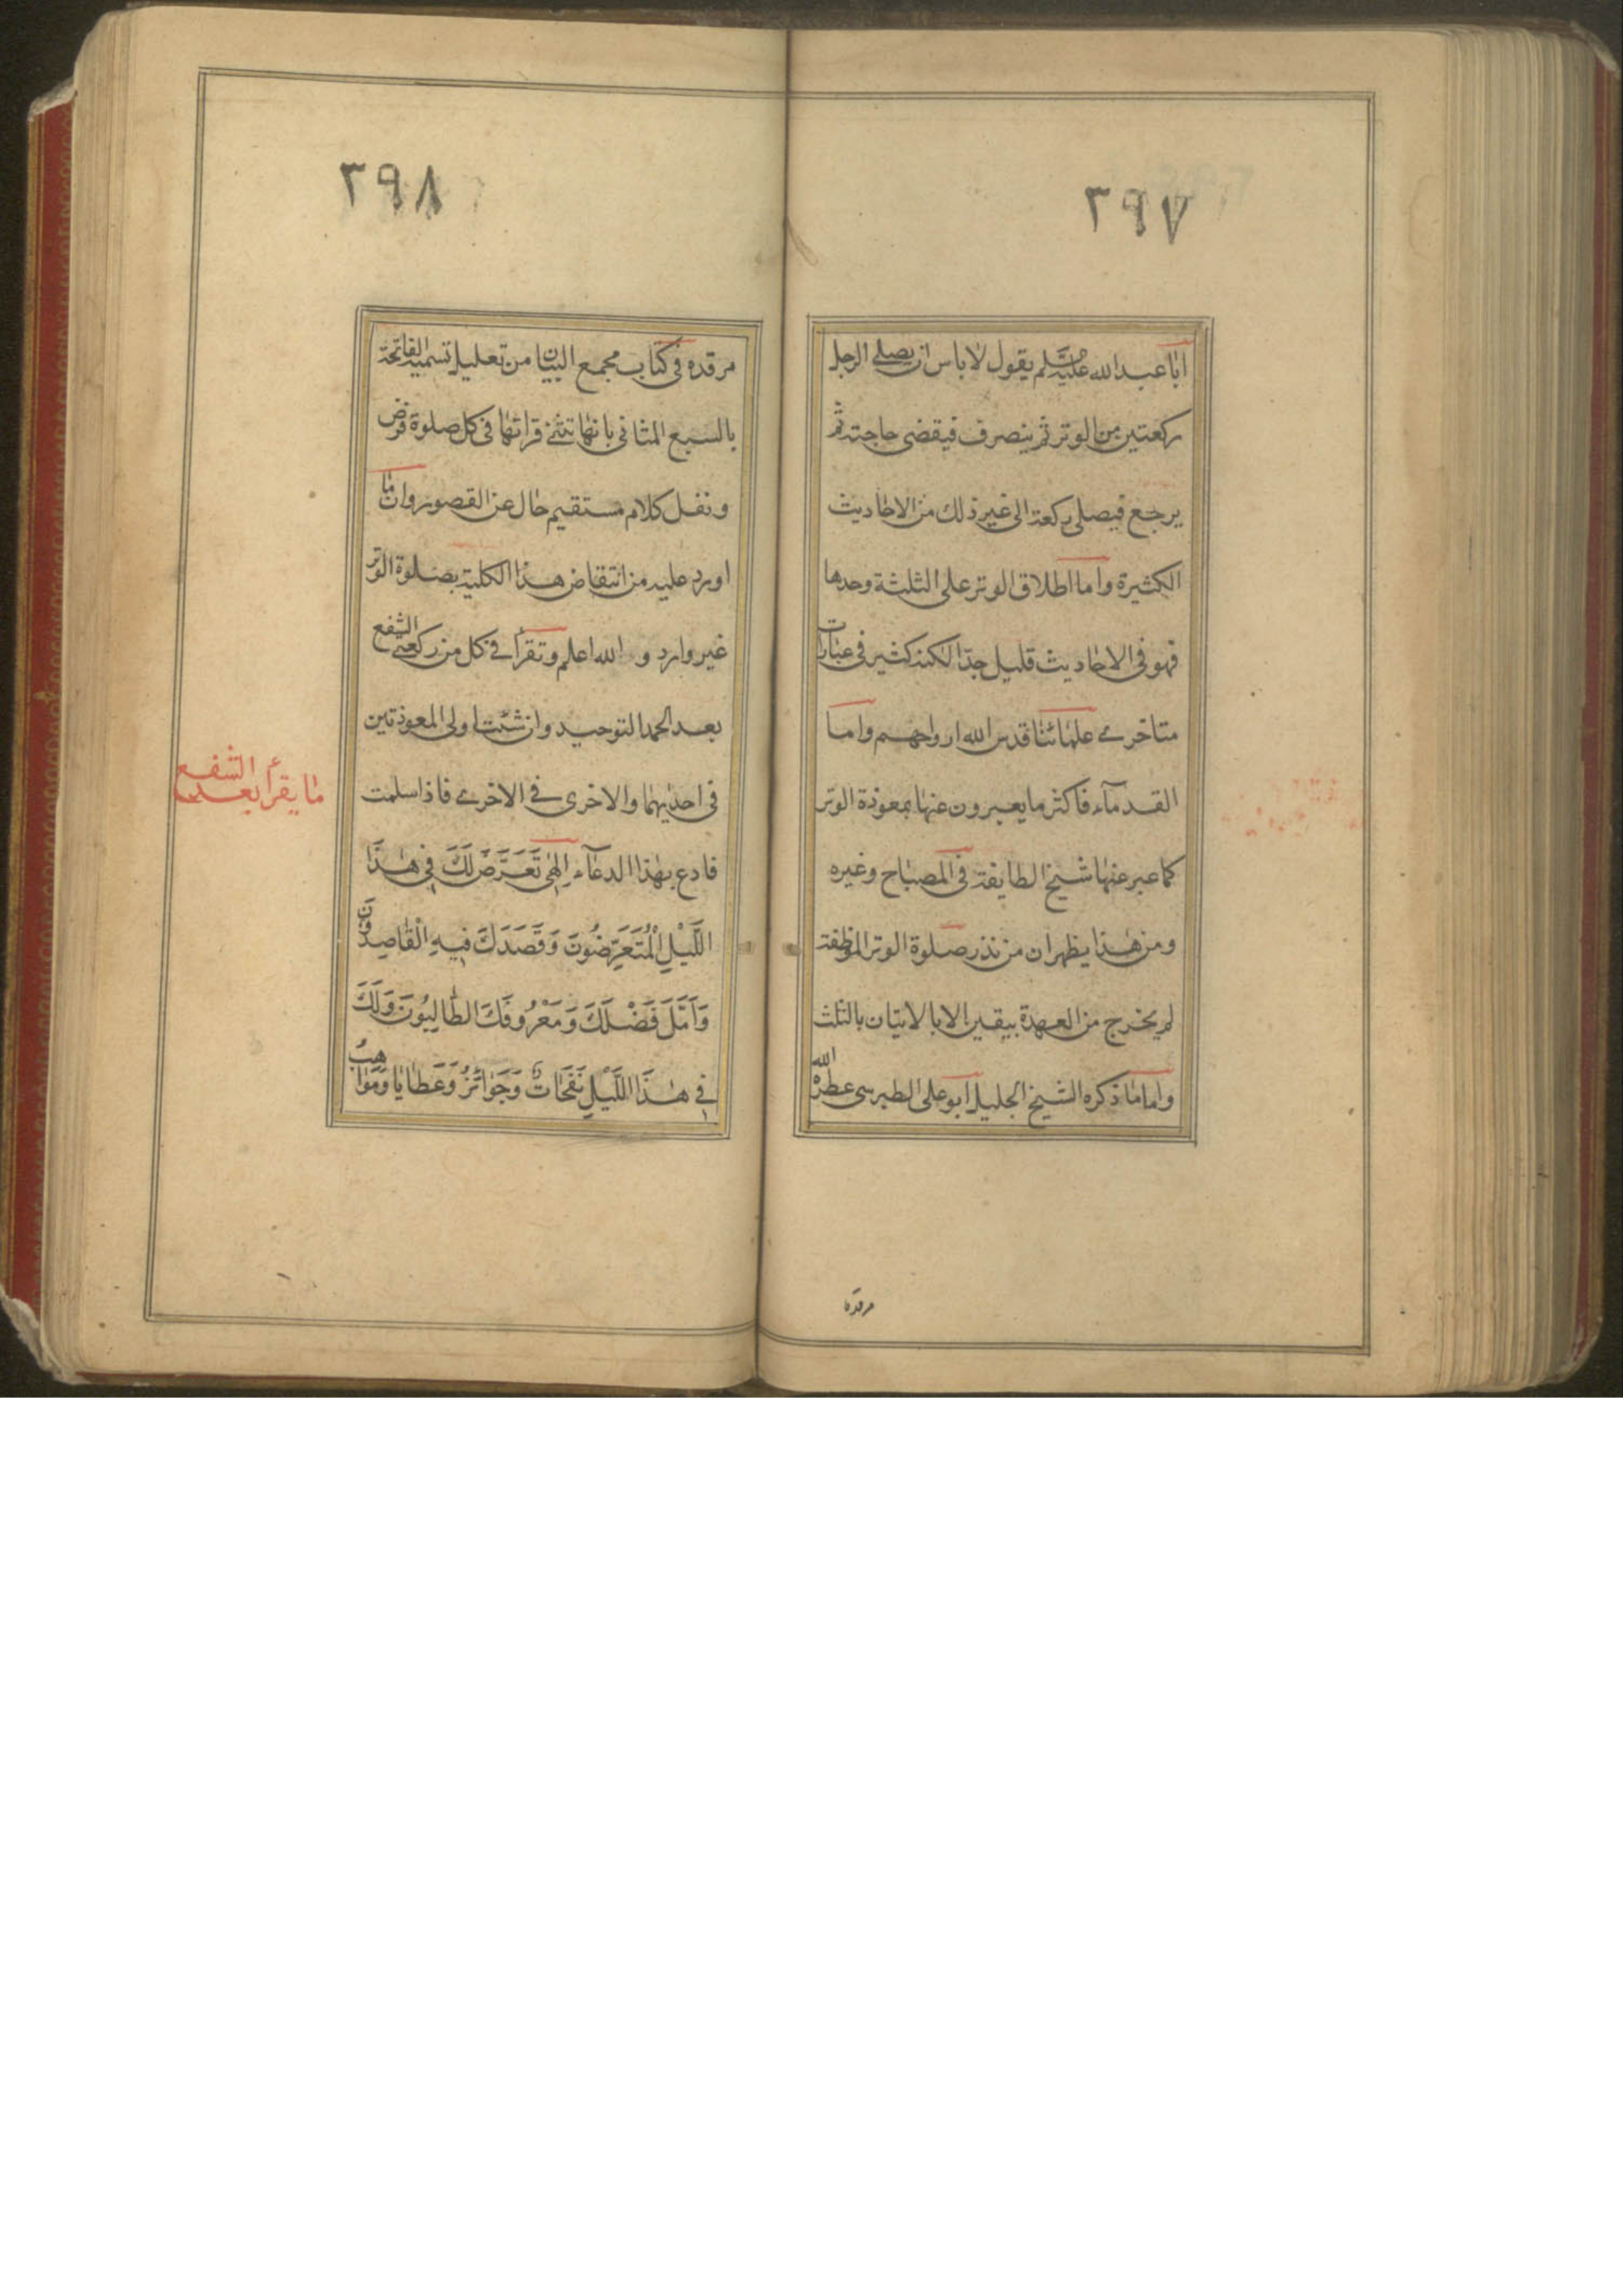 ٢٩٧
ابا عبد الله عليه السلام يقول لا باس ان يصلي الرجل
ركعتين من الوتر ثم ينصرف فيقضى حاجته ثم
يرجع فيصلى ركعة الى غير ذلك من الاحاديث
الكثيرة واما اطلاق الوتر على الثلثة وحدها
فهو فى الاحاديث قليل جدا لكنه كثير فى عبارات
متاخرى علمائنا قدس الله ارواحهم واما
القدمآء فاكثر ما يعبرون عنها بمفردة الوتر
كما عبر عنها شيخ الطايفة فى المصباح وغيره
ومن هذا يظهر ان من نذر صلوة الوتر الموظفة
لم يخرج من العهدة بيقين الا بالاتيان بالثلث
واما ما ذكره الشيخ الجليل ابو على الطبرسى عطر الله
مرقده
٢٩٨
مرقده فى كتاب مجمع البيان من تعليل تسمية الفاتحة
بالسبع المثانى بانها تثنى قراتها فى كل صلوة فرض
ونفل كلام مستقيم خال عن القصور وان ما
اورد عليه من انتقاض هذا الكلية بصلوة الوتر
غير وارد و الله اعلم وتقرأ فى كل من ركعتى الشفع
بعد الحمد التوحيد وان شئت اولى المعوذتين
فى احديهما والاخرى فى الاخرى فاذا سلمت
فادع بهذا الدعآء اِلٰهِى تَعَرَّضَ لَكَ فِى هٰذَا
اللَّيْلِ الْمُتَعَرِّضُونَ وَقَصَدَكَ فِيهِ الْقَاصِدُونَ
وَاَمَّلَ فَضْلَكَ وَمَعْرُوفَكَ الطَّالِبُونَ وَلَكَ
فِى هٰذَا اللَّيْلِ نَفَحَاتٌ وَجَوَائِزُ وَعَطَايَا وَمَوَاهِبُ
ما يقرأ الشفع
بعد